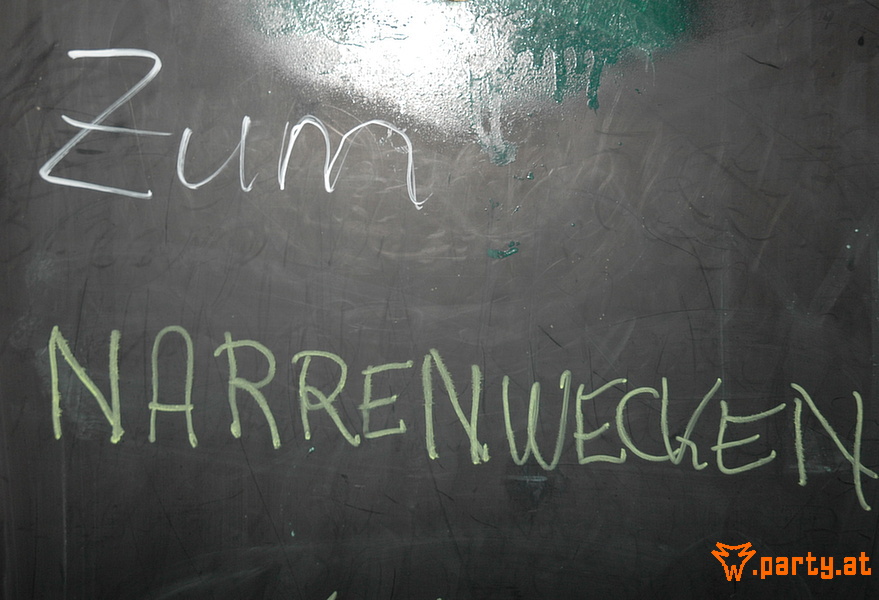 Zum
NARRENWECKEN
.party.at